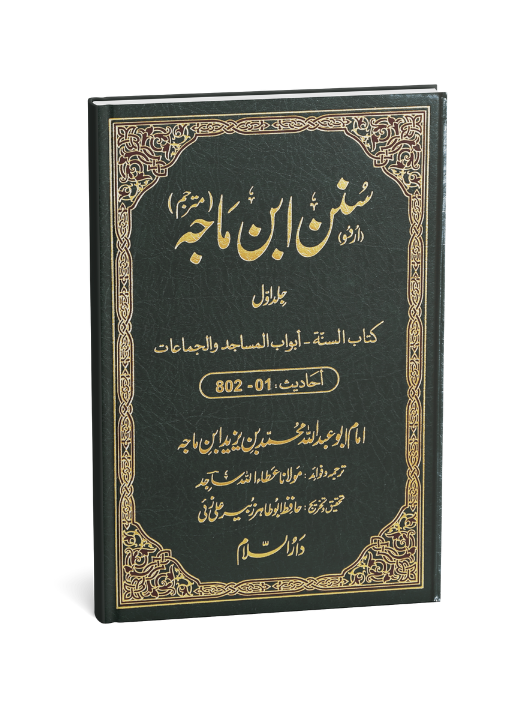 سُنن ابن مَاجَه (مترجم)
(اردو)
جلد اوّل
كتاب السنّة - أبواب المساجد والجماعات
أحَادیث: 01- 802
امام ابو عبداللہ محمّد بن یزید ابن ماجہ
ترجمہ و فوائد: مَولانا عَطاء اللہ سَاجِد
تحقیق و تخریج: حافظ ابو طاہر زبیر علی زئی
دَارُ السَّلام